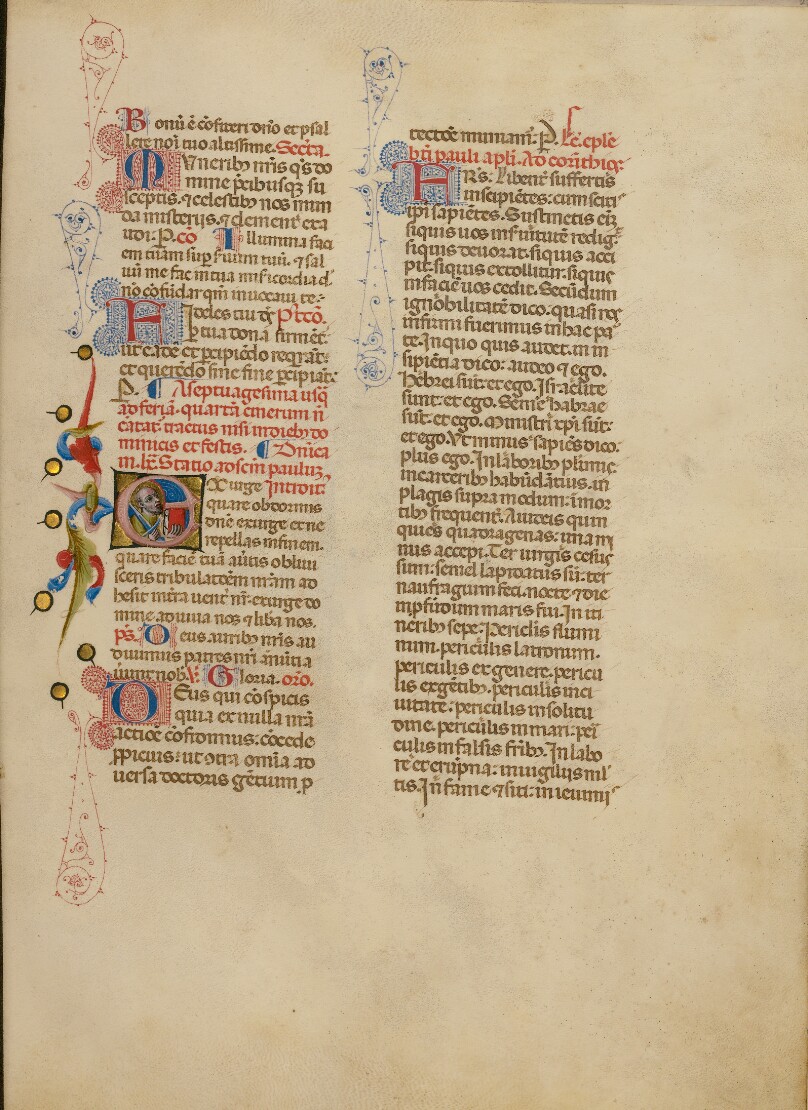 Bonũ ẽ cõfiteri dño et psal
lere noĩ tuo altissime. Secreta.
Muneribꝫ nr̃is q̃s do
mine p̃cibusqꝫ su
sceptis. ⁊ celestibꝫ nos mun
da misterijs. ⁊ clement̃ exa
udi. P. cõ Illumina faci
em tuam sup̃ seruum tuũ. ⁊ sal
uũ me fac in tua mĩsericordia d
ñe nõ cõfũdar qm̃ inuocaui te.
Fideles tui dẽ Pt cõ.
p̱ tua dona firment̃
ut eadẽ et p̱cipiẽdo reqrãt
et querẽdo sine fine p̱cipiãt.
P. ¶ A septuagesima usq̃
ad feriã quartã cinerum ñ
cãtat̃ tractus nisi in diebꝫ do
minicis et festis. ¶ Dñica
in. lx̃. Statio ad scm̃ paulum.
Exurge Introit̃
quare obdormis
dñe exurge et ne
repellas in finem.
quare faciẽ tuã au̾tis obliui
sceris tribulatõem nr̃am ad
hesit in t̃ra uent̃ nr̃. exurge do
mine adiuua nos ⁊ liba nos.
ps̃. Deus auribꝫ nr̃is au
diuimus patres nr̃i anũtia
uerunt nob̃. V̾. Gloria. or̃o.
Deus qui cõspicis
quia ex nulla nr̃a
actiõe cõfidimus. cõcede
p̱picius. ut cõtra om̃ia ad
uersa doctoris gẽtium p̱
tectiõe muniam̃. P. Lc̃. ep̃le
bt̃i pauli apl̃i. Ad corĩthios.
Frs̃. Libent̃ suffertis
insipiẽtes. cum sitis
ip̃i sapiẽtes. Sustinetis eĩ
siquis uos in s̾uitutẽ redig̃
siquis deuorat. siquis acci
pit. siquis extollitur. siquis
in faciẽ uos cedit. Secũdum
ignobilitatẽ dico. quasi nos
infirmi fuerimus in hac pa
te. In quo quis audet. in in
sipiẽtia dico. audeo ⁊ ego.
Hebrei sũt. et ego. Isr̃aelite
sunt. et ego. Semẽ habrae
sũt. et ego. Ministri xp̃i sũt.
et ego. Vt minus sapiẽs dico.
plus ego. In laboribꝫ plurimis
in carceribꝫ habũdãtius. in
plagis supra modum. ĩ mor
tibꝫ frequent̃. A iudeis quin
quies quadragenas. una mi
nus accepi. Ter uirgis cesus
sum. semel lapidatus sũ. ter
naufragium feci. nocte ⁊ die
in p̱fũdum maris fui. In iti
neribꝫ sepe. Periculis flumi
num. periculis latronum.
periculis ex genere. pericu
lis ex gẽtibꝫ. periculis in ci
uitate. periculis in solitu
dine. periculis in mari. peri
culis in falsis fr̃ibꝫ. In labo
re et erũpna. in uigiliis ml̾
tis. In fame ⁊ siti. in ieiuni